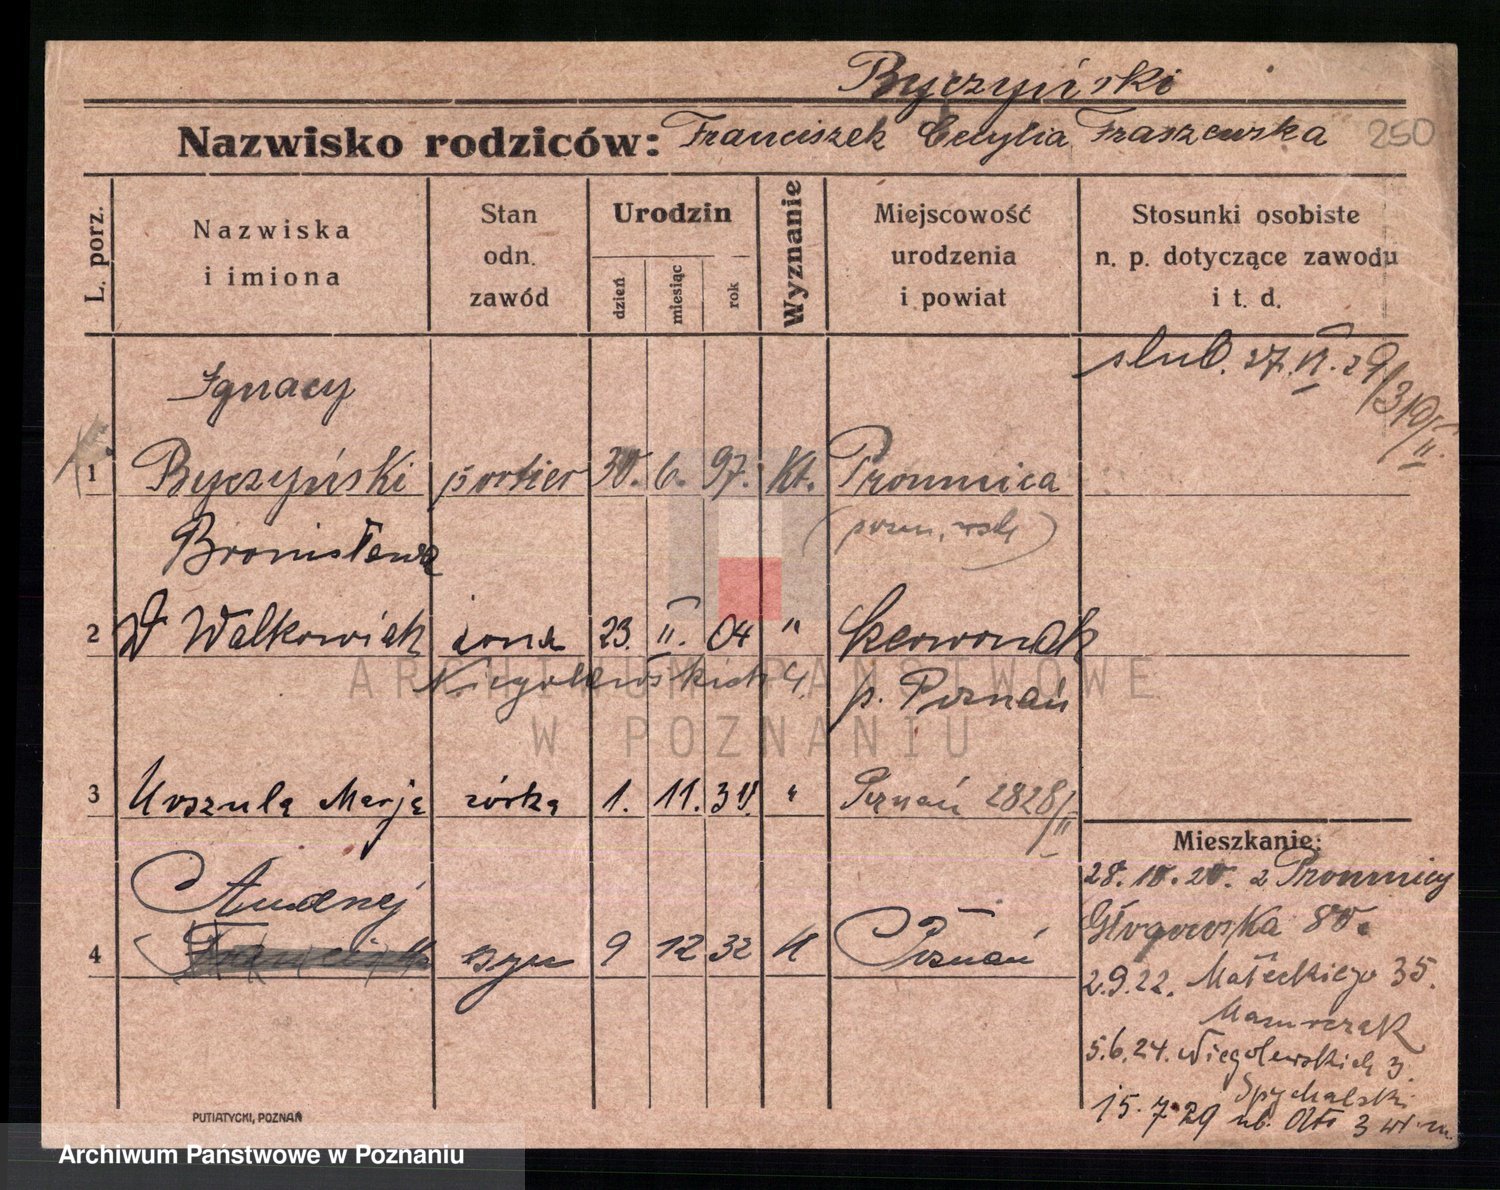 Byczyński
Nazwisko rodziców: Franciszek Cecylia Fraszewska 250
L. porz.
Nazwiska i imiona
Stan odn. zawód
Urodzin
dzień
miesiąc
rok
Wyznanie
Miejscowość urodzenia i powiat
Stosunki osobiste n. p. dotyczące zawodu i t. d.
ślub. 27. VI. 29/310/II.
Ignacy
1 Byczyński portier 30. 6. 97. kt. Promnica
Bronisława
2 Walkowiak żona 23. II. 04 " Czerwonak
Niegolewskich 4. p. Poznań
3 Urszula Marja córka 1. 11. 30. " Poznań 2828/II
Andrzej
4 syn 9 12 32 kt Poznań
Mieszkanie:
28. 10. 20. z Promnicy
Głogowska 80.
2.9.22. Małeckiego 35.
Mazurczak
5.6.24. Niegolewskich 3.
Spychalski
15. 7. 29 ub. 3 w. m.
PUTIATYCKI, POZNAŃ
ARCHIWUM PAŃSTWOWE
W POZNANIU
Archiwum Państwowe w Poznaniu